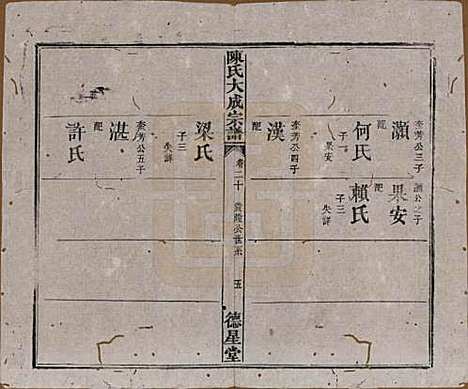 灝 泰芳公三子
配 何氏
子一 果安
漢 泰芳公四子
配
果安 灝公之子
配 賴氏
子三 失詳
陳氏大成宗譜
卷二十
五
德星堂
梁氏
子三 失詳
湛 泰芳公五子
配 許氏